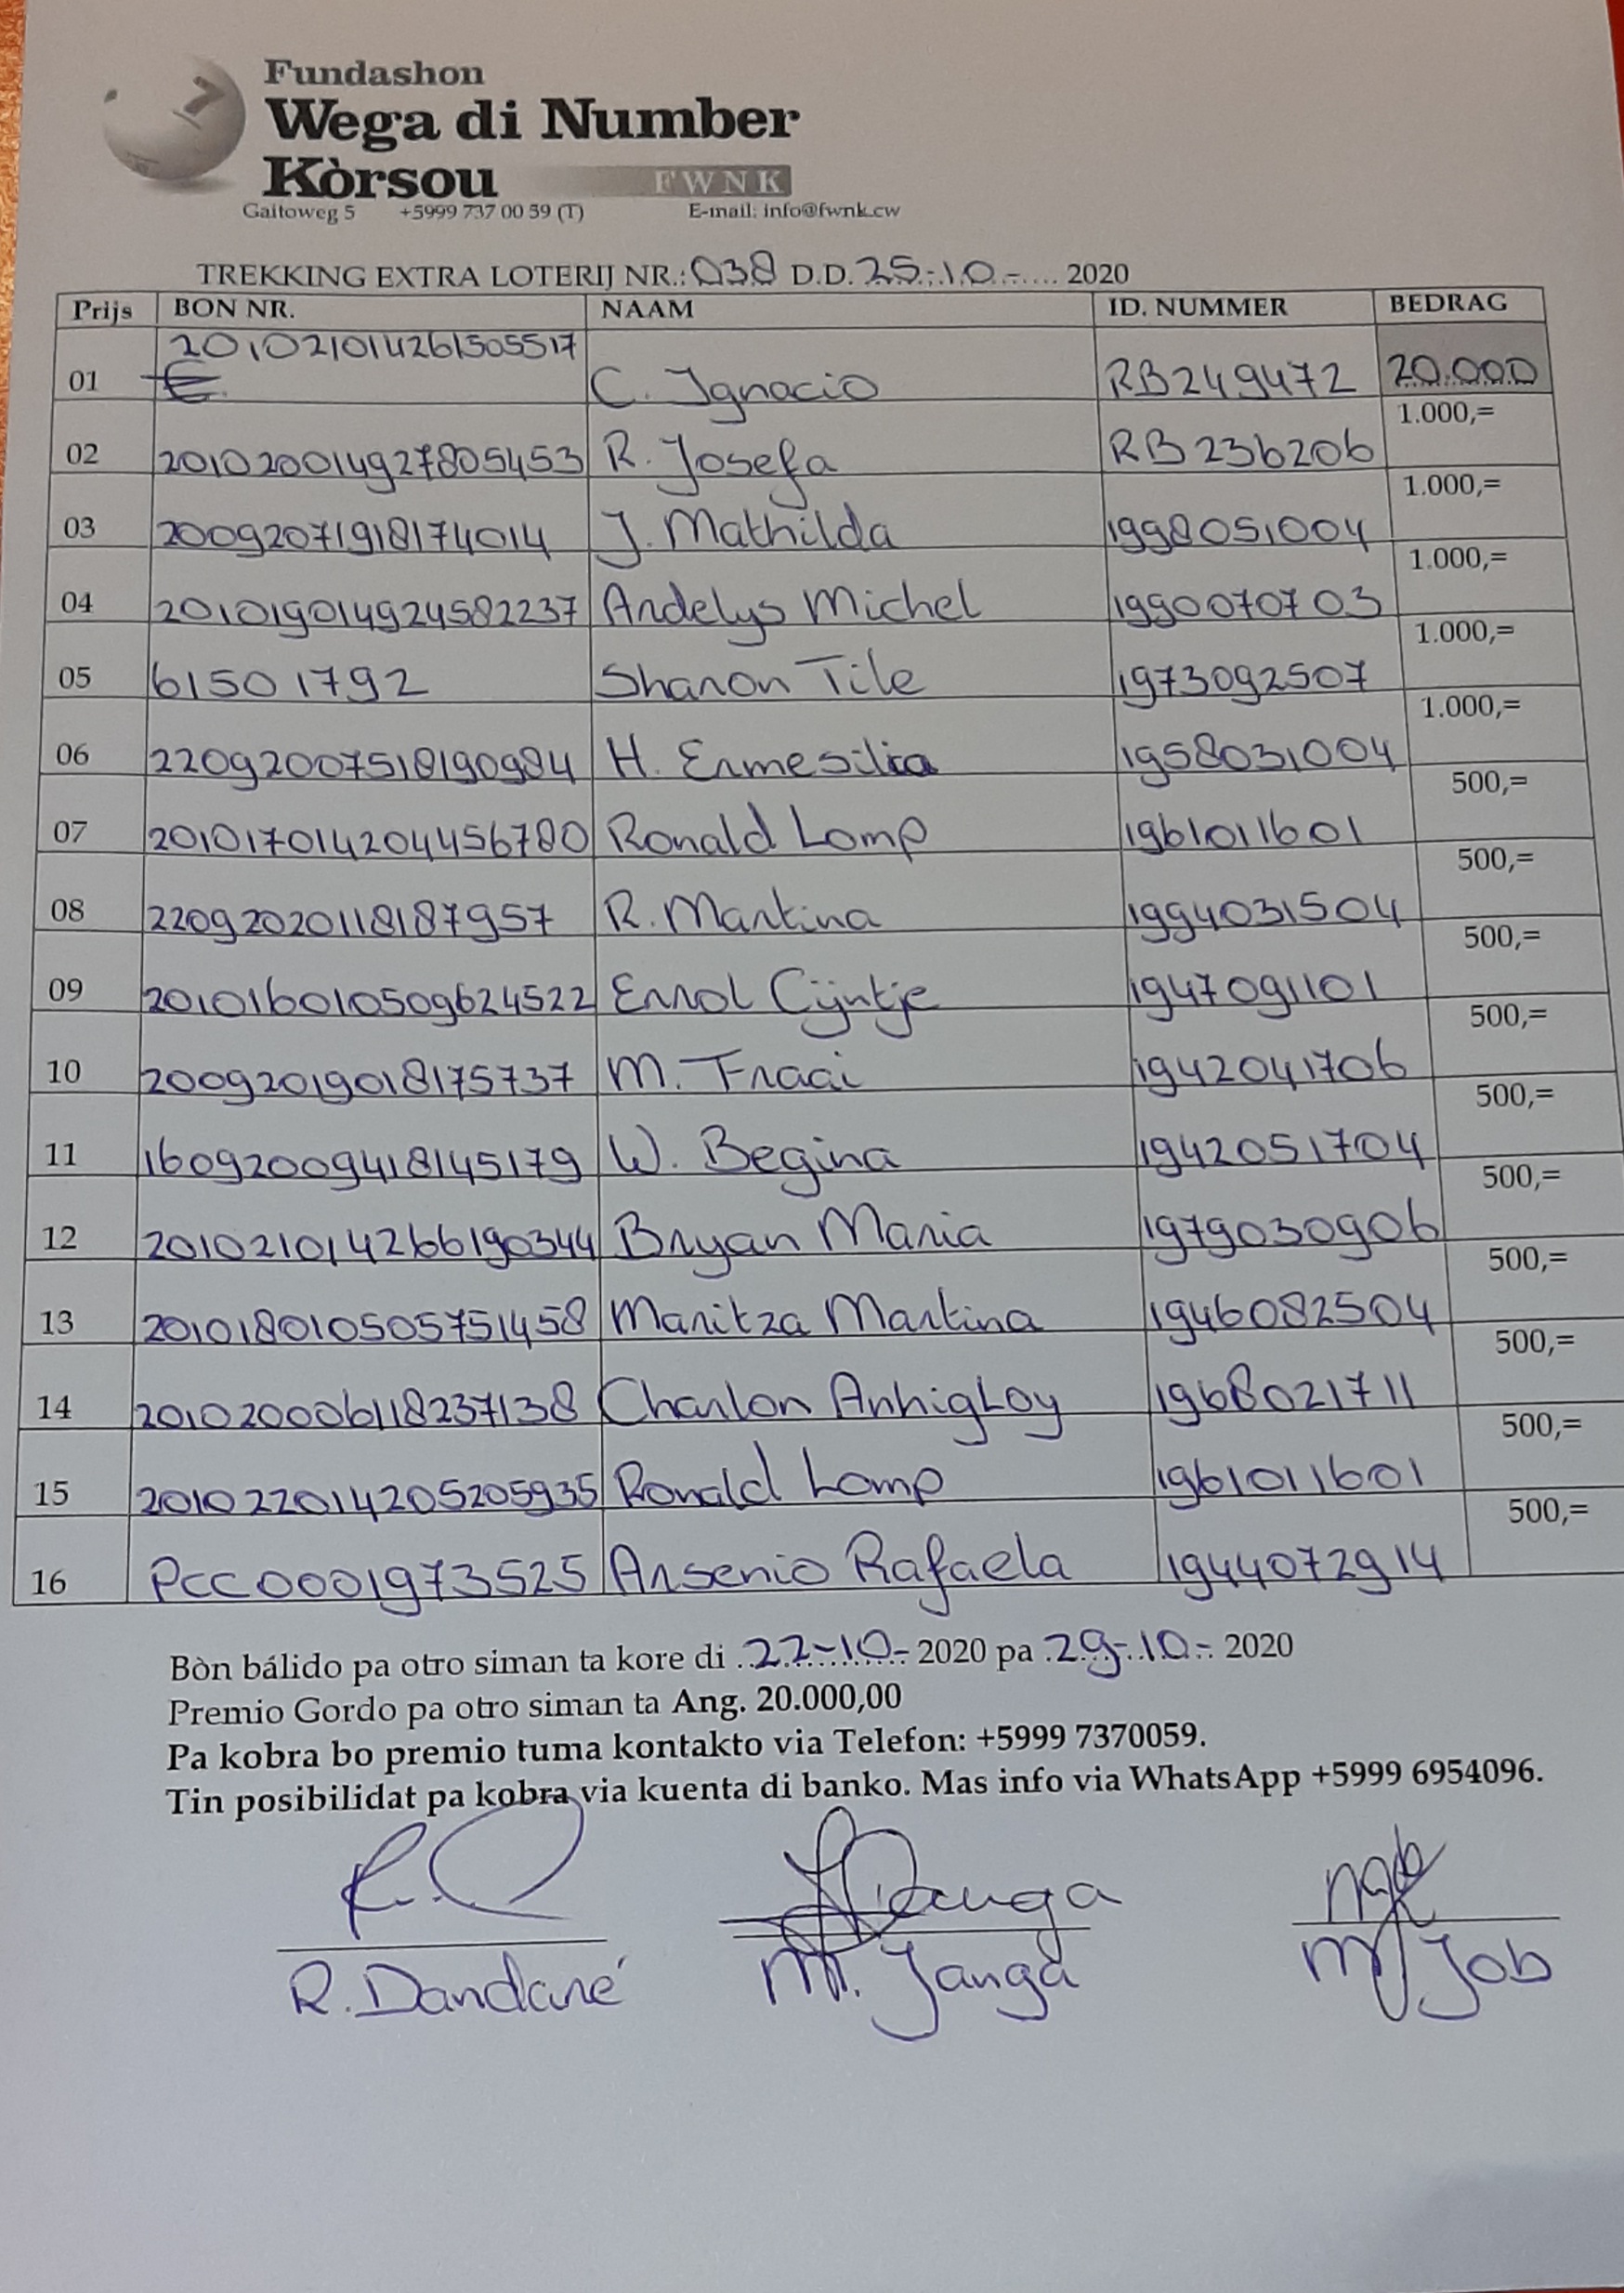 Fundashon
Wega di Number
Kòrsou FWNK
Gaitoweg 5 +5999 737 00 59 (T) E-mail: info@fwnk.cw
TREKKING EXTRA LOTERIJ NR.: 038 D.D. 25-10-.... 2020
Prijs BON NR. NAAM ID. NUMMER BEDRAG
01 201021014261505517 C. Ignacio RB249472 20.000
02 201020014927805453 R. Josefa RB236206 1.000,=
03 2009207191817 4014 J. Mathilda 1998051004 1.000,=
04 201019014924582237 Andelys Michel 1990070703 1.000,=
05 61501792 Sharon Tile 1973092507 1.000,=
06 2209200751819 0984 H. Ermesilia 1958031004 1.000,=
07 2010170142044456780 Ronald Lomp 1961011601 500,=
08 22092020118187957 R. Martina 1994031504 500,=
09 2010160105096 24522 Errol Cijntje 1947091101 500,=
10 200920190181 75737 M. Fraai 1942041706 500,=
11 16092009418145179 W. Begina 1942051704 500,=
12 2010210142661 90344 Bryan Maria 1979030906 500,=
13 2010180105057 51458 Maritza Martina 1946082504 500,=
14 201020006118237138 Charlon AnhigLoy 1968021711 500,=
15 2010220142052 05935 Ronald Lomp 1961011601 500,=
16 PCC0001973525 Arsenio Rafaela 1944072914 500,=
Bòn bálido pa otro siman ta kore di 22-10- 2020 pa 29-10- 2020
Premio Gordo pa otro siman ta Ang. 20.000,00
Pa kobra bo premio tuma kontakto via Telefon: +5999 7370059.
Tin posibilidat pa kobra via kuenta di banko. Mas info via WhatsApp +5999 6954096.
R. Dandaré M. Janga M Job